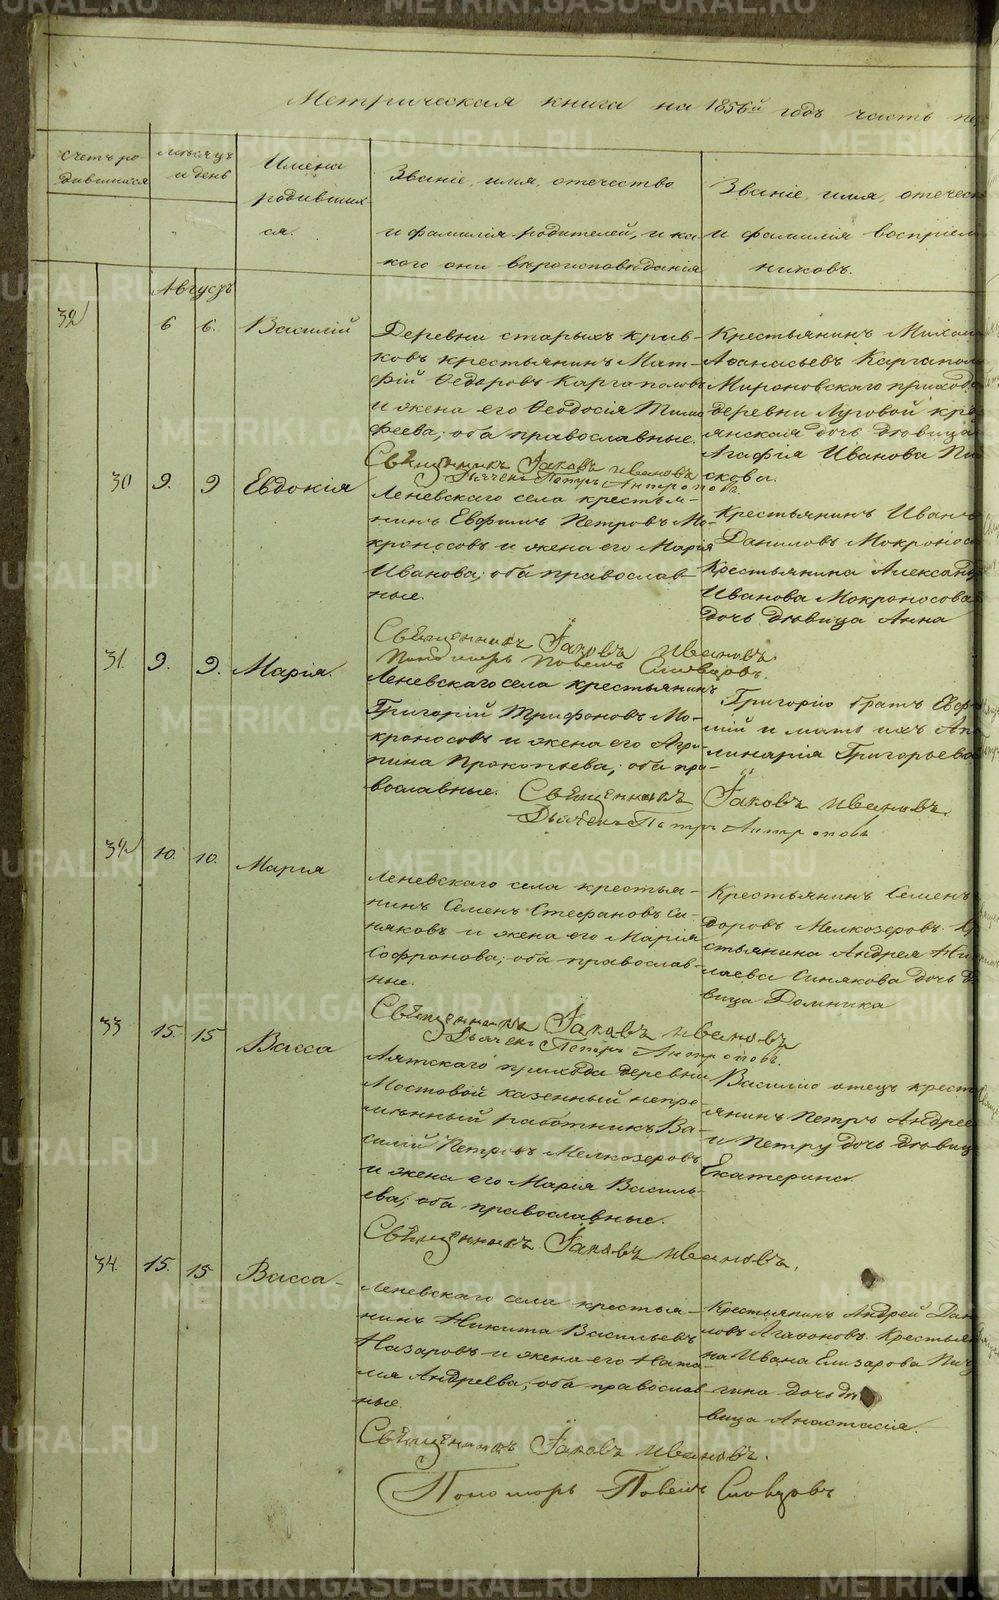 Метрическая книга на 1856й годъ часть пе
Счетъ ро-
дившихся
мѣсяцъ
и день
Имена
родивших-
ся.
Званіе, имя, отечество
и фамилія родителей, и ка-
кого они вѣроисповѣданія
Званіе, имя, отечест
и фамилія воспріем
никовъ.
Августъ
6 6. Василій
Деревни старыхъ крив-
ковъ крестьянинъ Мат-
фій Ѳедоровъ Каргаполовъ
и жена его Ѳеодосія Тимо
феева; оба православные.
Священникъ Іаковъ Ивановъ
Дьячекъ Петръ Антроповъ.
Крестьянинъ Михаи
Аѳанасьевъ Каргапол
Мироновскаго прихода
деревни Луговой кре
янская дочь дѣвица
Агафія Иванова Пи
скова.
30 9. 9 Евдокія
Леневскаго села крестья-
нинъ Евфимъ Петровъ Мо-
кроносовъ и жена его Марія
Иванова; оба православ-
ные.
Священникъ Іаковъ Ивановъ.
Пономарь Павелъ Словцовъ.
Крестьянинъ Иванъ
Даниловъ Мокронос
Крестьянина Александ
Иванова Мокроносова
дочь дѣвица Анна
31. 9. 9. Марія.
Леневскаго села крестьянинъ
Григорій Трифоновъ Мо-
кроносовъ и жена его Агри-
пина Прокопьева; оба пра-
вославные.
Священникъ Іаковъ Ивановъ.
Дьячекъ Петръ Антроповъ
Григорію братъ Евф
мій и мать ихъ Ап
линарія Григорьева
32 10. 10. Мария
Леневскаго села крестья-
нинъ Семенъ Стефановъ Си-
няковъ и жена его Марія
Софронова; оба православ-
ные.
Священникъ Іаковъ Ивановъ
Дьячекъ Петръ Антроповъ.
Крестьянинъ Семенъ
доровъ Мелкозеровъ. Кр
стьянина Андрея Ни
лаева Синякова дочь д
вица Домника
33 15. 15 Васса
Аятскаго прихода деревни
Мостовой казенный непре
мѣнный работникъ Ва-
силій Петровъ Мелкозеровъ
и жена его Марія Василь-
ева; оба православные.
Священникъ Іаковъ Ивановъ.
Василію отецъ крест
янинъ Петръ Андрее
и Петру дочь дѣвиц
Екатерина
34. 15. 15 Васса
Леневскаго села крестья-
нинъ Никита Васильевъ
Назаровъ и жена его Ната-
лія Андреева; оба православ
ные.
Священникъ Іаковъ Ивановъ.
Пономарь Павелъ Словцовъ
Крестьянинъ Андрей Дан
ловъ Агафоновъ. Крестьян
на Ивана Елизарова Пич
гина дочь дѣ
вица Анастасія.
METRIKI.GASO-URAL.RU